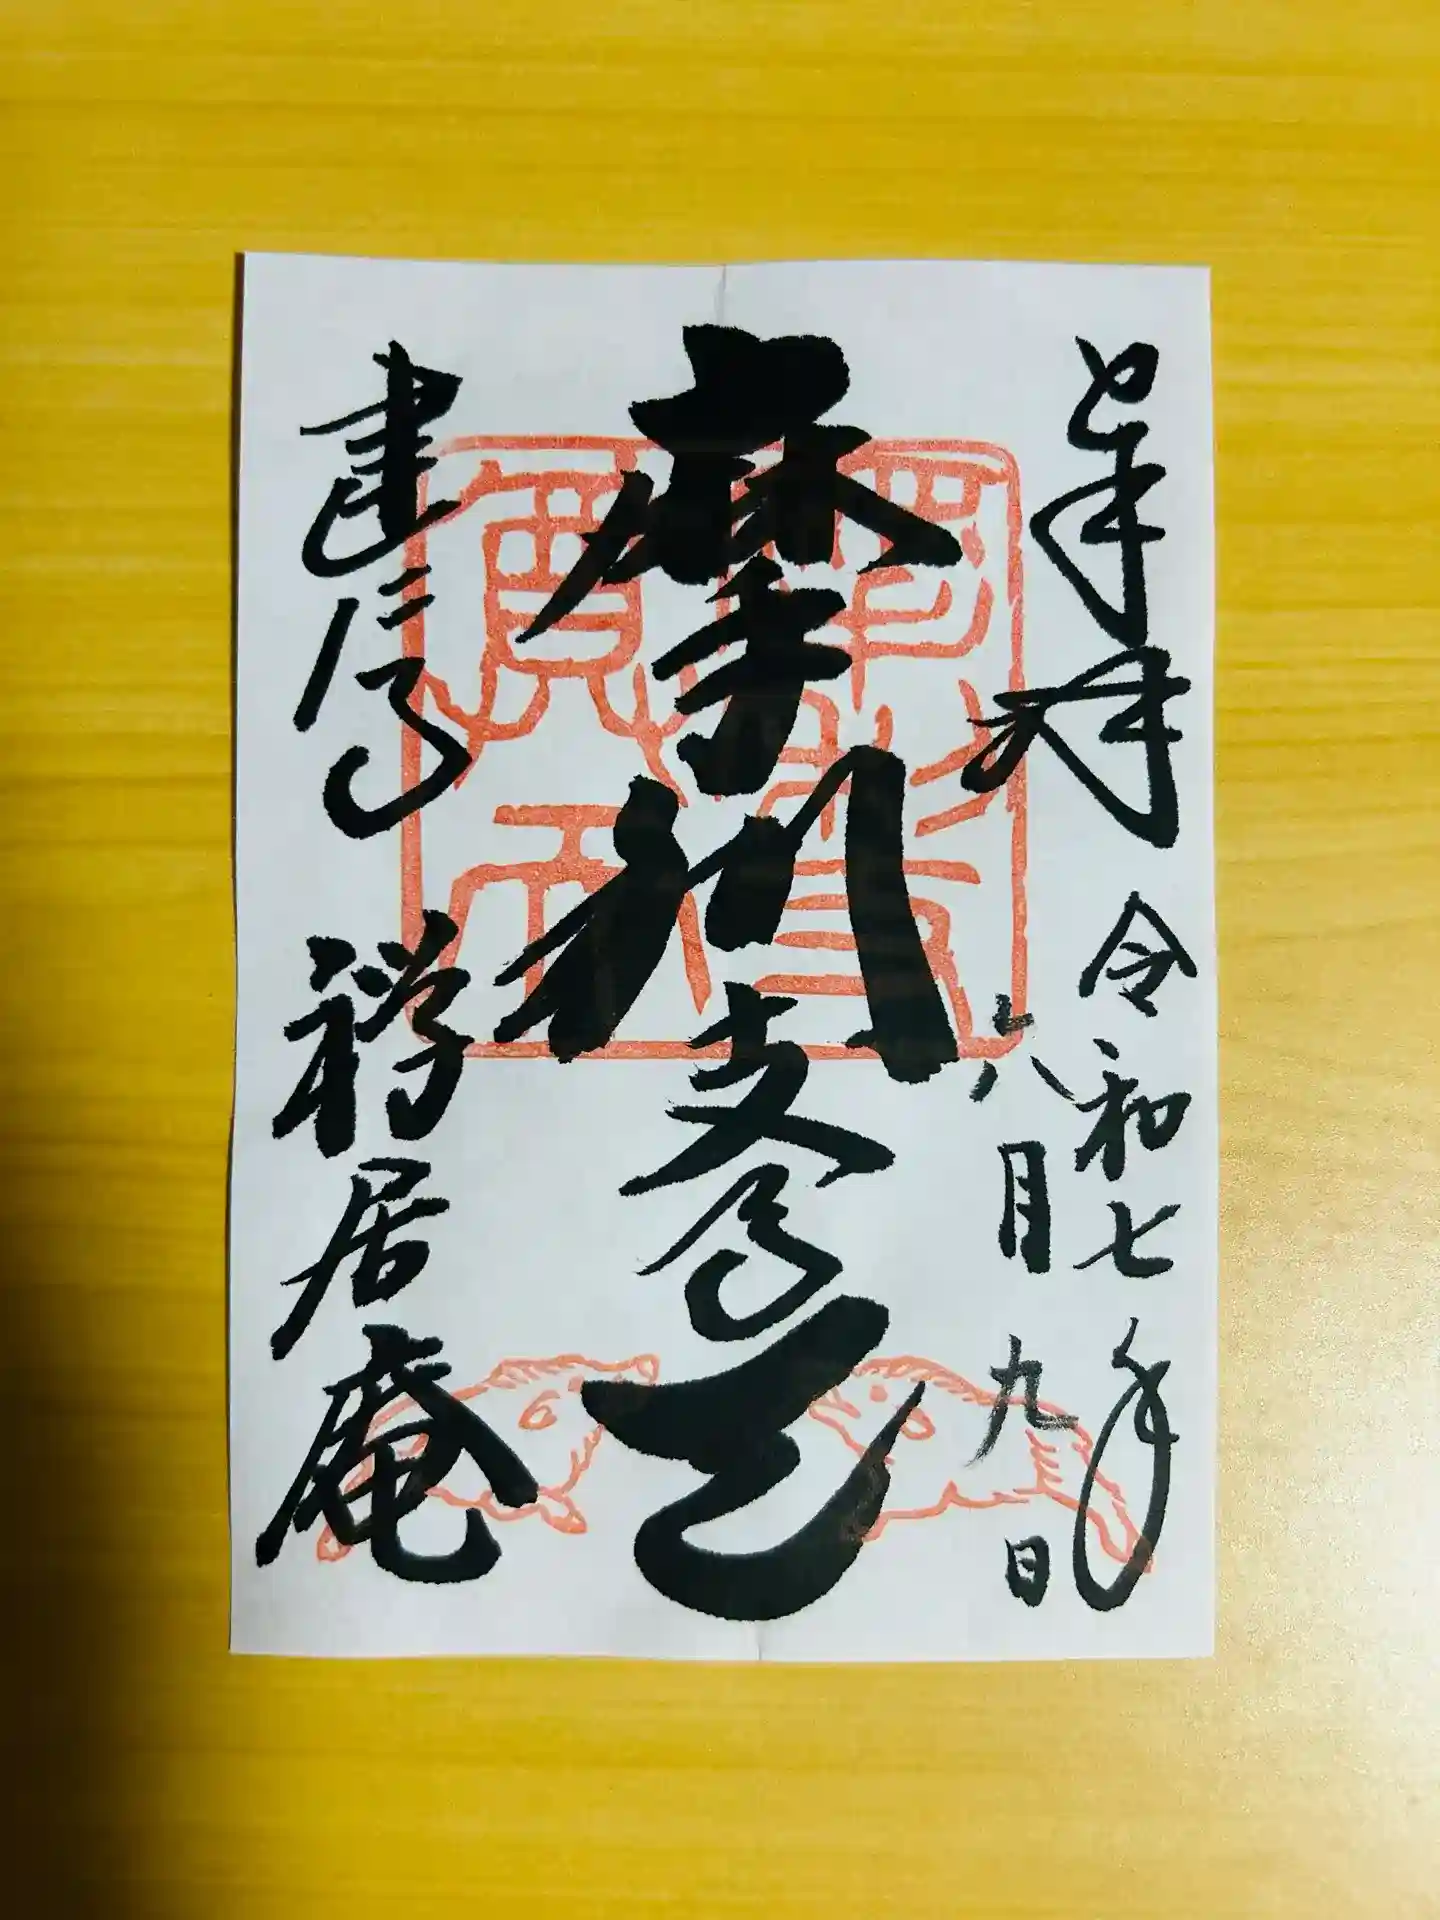 奉拝
令和七年
八月九日
摩利支尊天
建仁寺
禅居庵